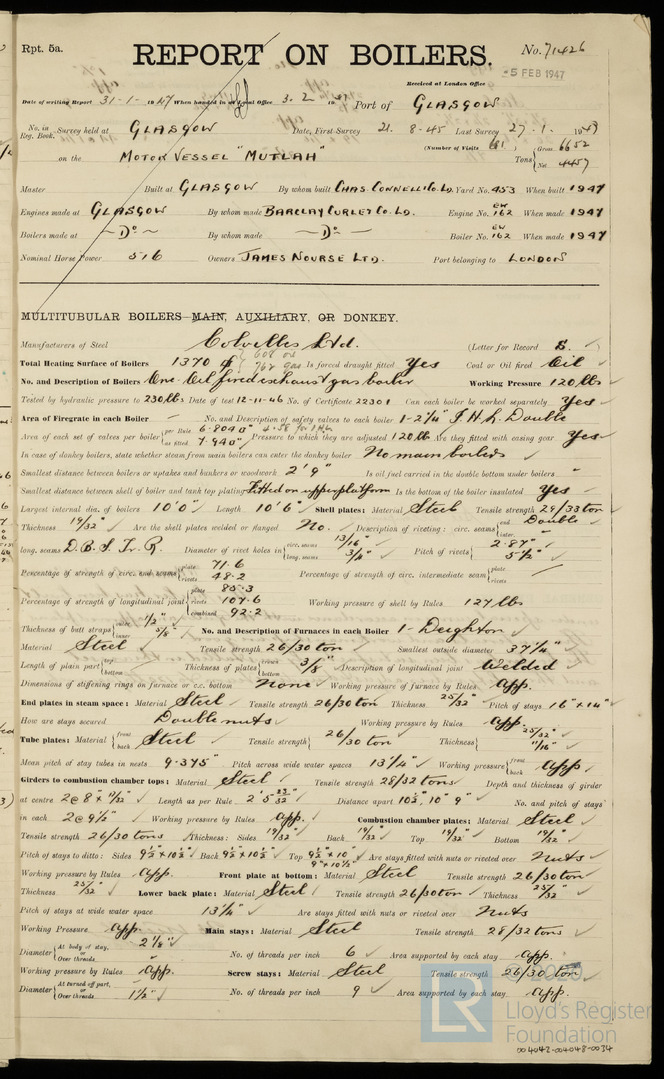 Rpt. 5a.
REPORT ON BOILERS.
No. 71426
Received at London Office
-5 FEB 1947
Date of writing Report 31-1-1947 When handed in at Local Office 3.2.19 Port of GLASGOW
No. in Reg. Book. Survey held at GLASGOW Date, First Survey 21.8-45 Last Survey 27.1.1947
(Number of Visits 61)
on the MOTOR VESSEL "MUTLAH" Tons { Gross 6652 Net 4457
Master Built at GLASGOW By whom built CHAS. CONNELL & Co. LD. Yard No. 453 When built 1947
Engines made at GLASGOW By whom made BARCLAY CURLE & Co. LD. Engine No. EW 162 When made 1947
Boilers made at — Do — By whom made — Do — Boiler No. EW 162 When made 1947
Nominal Horse Power 516 Owners JAMES NOURSE LTD. Port belonging to LONDON
MULTITUBULAR BOILERS MAIN, AUXILIARY, OR DONKEY.
Manufacturers of Steel Colvilles Ltd. (Letter for Record S.
Total Heating Surface of Boilers 1370 608 oil 762 gas Is forced draught fitted Yes Coal or Oil fired Oil
No. and Description of Boilers One Oil fired exhaust gas boiler Working Pressure 120 lbs
Tested by hydraulic pressure to 230 lbs Date of test 12-11-46 No. of Certificate 22301 Can each boiler be worked separately Yes
Area of Firegrate in each Boiler — No. and Description of safety valves to each boiler 1-2¼" I.H.L. Double
Area of each set of valves per boiler { per Rule 6.804 as fitted 7.940 Pressure to which they are adjusted 120 lb Are they fitted with easing gear Yes
In case of donkey boilers, state whether steam from main boilers can enter the donkey boiler No main boilers
Smallest distance between boilers or uptakes and bunkers or woodwork 2' 9" Is oil fuel carried in the double bottom under boilers -
Smallest distance between shell of boiler and tank top plating Fitted on upper platform Is the bottom of the boiler insulated Yes
Largest internal dia. of boilers 10' 0" Length 10' 6" Shell plates: Material Steel Tensile strength 29/33 ton
Thickness 19/32" Are the shell plates welded or flanged No. Description of riveting: circ. seams { end Double inter. -
long. seams D.B.S. Tr. R. Diameter of rivet holes in { circ. seams 13/16" long. seams 3/4" Pitch of rivets { 2.87" 5½"
Percentage of strength of circ. end seams { plate 71.6 rivets 48.2 Percentage of strength of circ. intermediate seam { plate rivets —
Percentage of strength of longitudinal joint { plate 85.3 rivets 107.6 combined 92.2 Working pressure of shell by Rules 127 lbs
Thickness of butt straps { outer 1/2" inner 5/8" No. and Description of Furnaces in each Boiler 1- Deighton
Material Steel Tensile strength 26/30 ton Smallest outside diameter 37¼"
Length of plain part { top bottom Thickness of plates { crown bottom 3/8" Description of longitudinal joint Welded
Dimensions of stiffening rings on furnace or c.c. bottom None Working pressure of furnace by Rules App.
End plates in steam space: Material Steel Tensile strength 26/30 ton Thickness 25/32" Pitch of stays 16" x 14"
How are stays secured Double nuts Working pressure by Rules App.
Tube plates: Material { front back Steel Tensile strength { 26/30 ton Thickness { 25/32" 11/16"
Mean pitch of stay tubes in nests 9.375 Pitch across wide water spaces 13¼" Working pressure { front back App
Girders to combustion chamber tops: Material Steel Tensile strength 28/32 tons Depth and thickness of girder
at centre 2@ 8" x 11/32" Length as per Rule 2' 5 23/32" Distance apart 10½, 10" 9" No. and pitch of stays
in each 2@ 9½" Working pressure by Rules App. Combustion chamber plates: Material Steel
Tensile strength 26/30 tons Thickness: Sides 19/32" Back 19/32" Top 19/32" Bottom 19/32"
Pitch of stays to ditto: Sides 9½" x 10½" Back 9½" x 10½" Top 9½" x 10" 9" x 10½" Are stays fitted with nuts or riveted over Nuts
Working pressure by Rules App. Front plate at bottom: Material Steel Tensile strength 26/30 ton
Thickness 25/32" Lower back plate: Material Steel Tensile strength 26/30 ton Thickness 25/32"
Pitch of stays at wide water space 13¼" Are stays fitted with nuts or riveted over Nuts
Working Pressure App. Main stays: Material Steel Tensile strength 28/32 tons
Diameter { At body of stay, or Over threads 2⅛" No. of threads per inch 6 Area supported by each stay App.
Working pressure by Rules App. Screw stays: Material Steel Tensile strength 26/30 ton
Diameter { At turned off part, or Over threads 1½" No. of threads per inch 9 Area supported by each stay App.
LR Lloyd's Register Foundation
004042-004048-0034